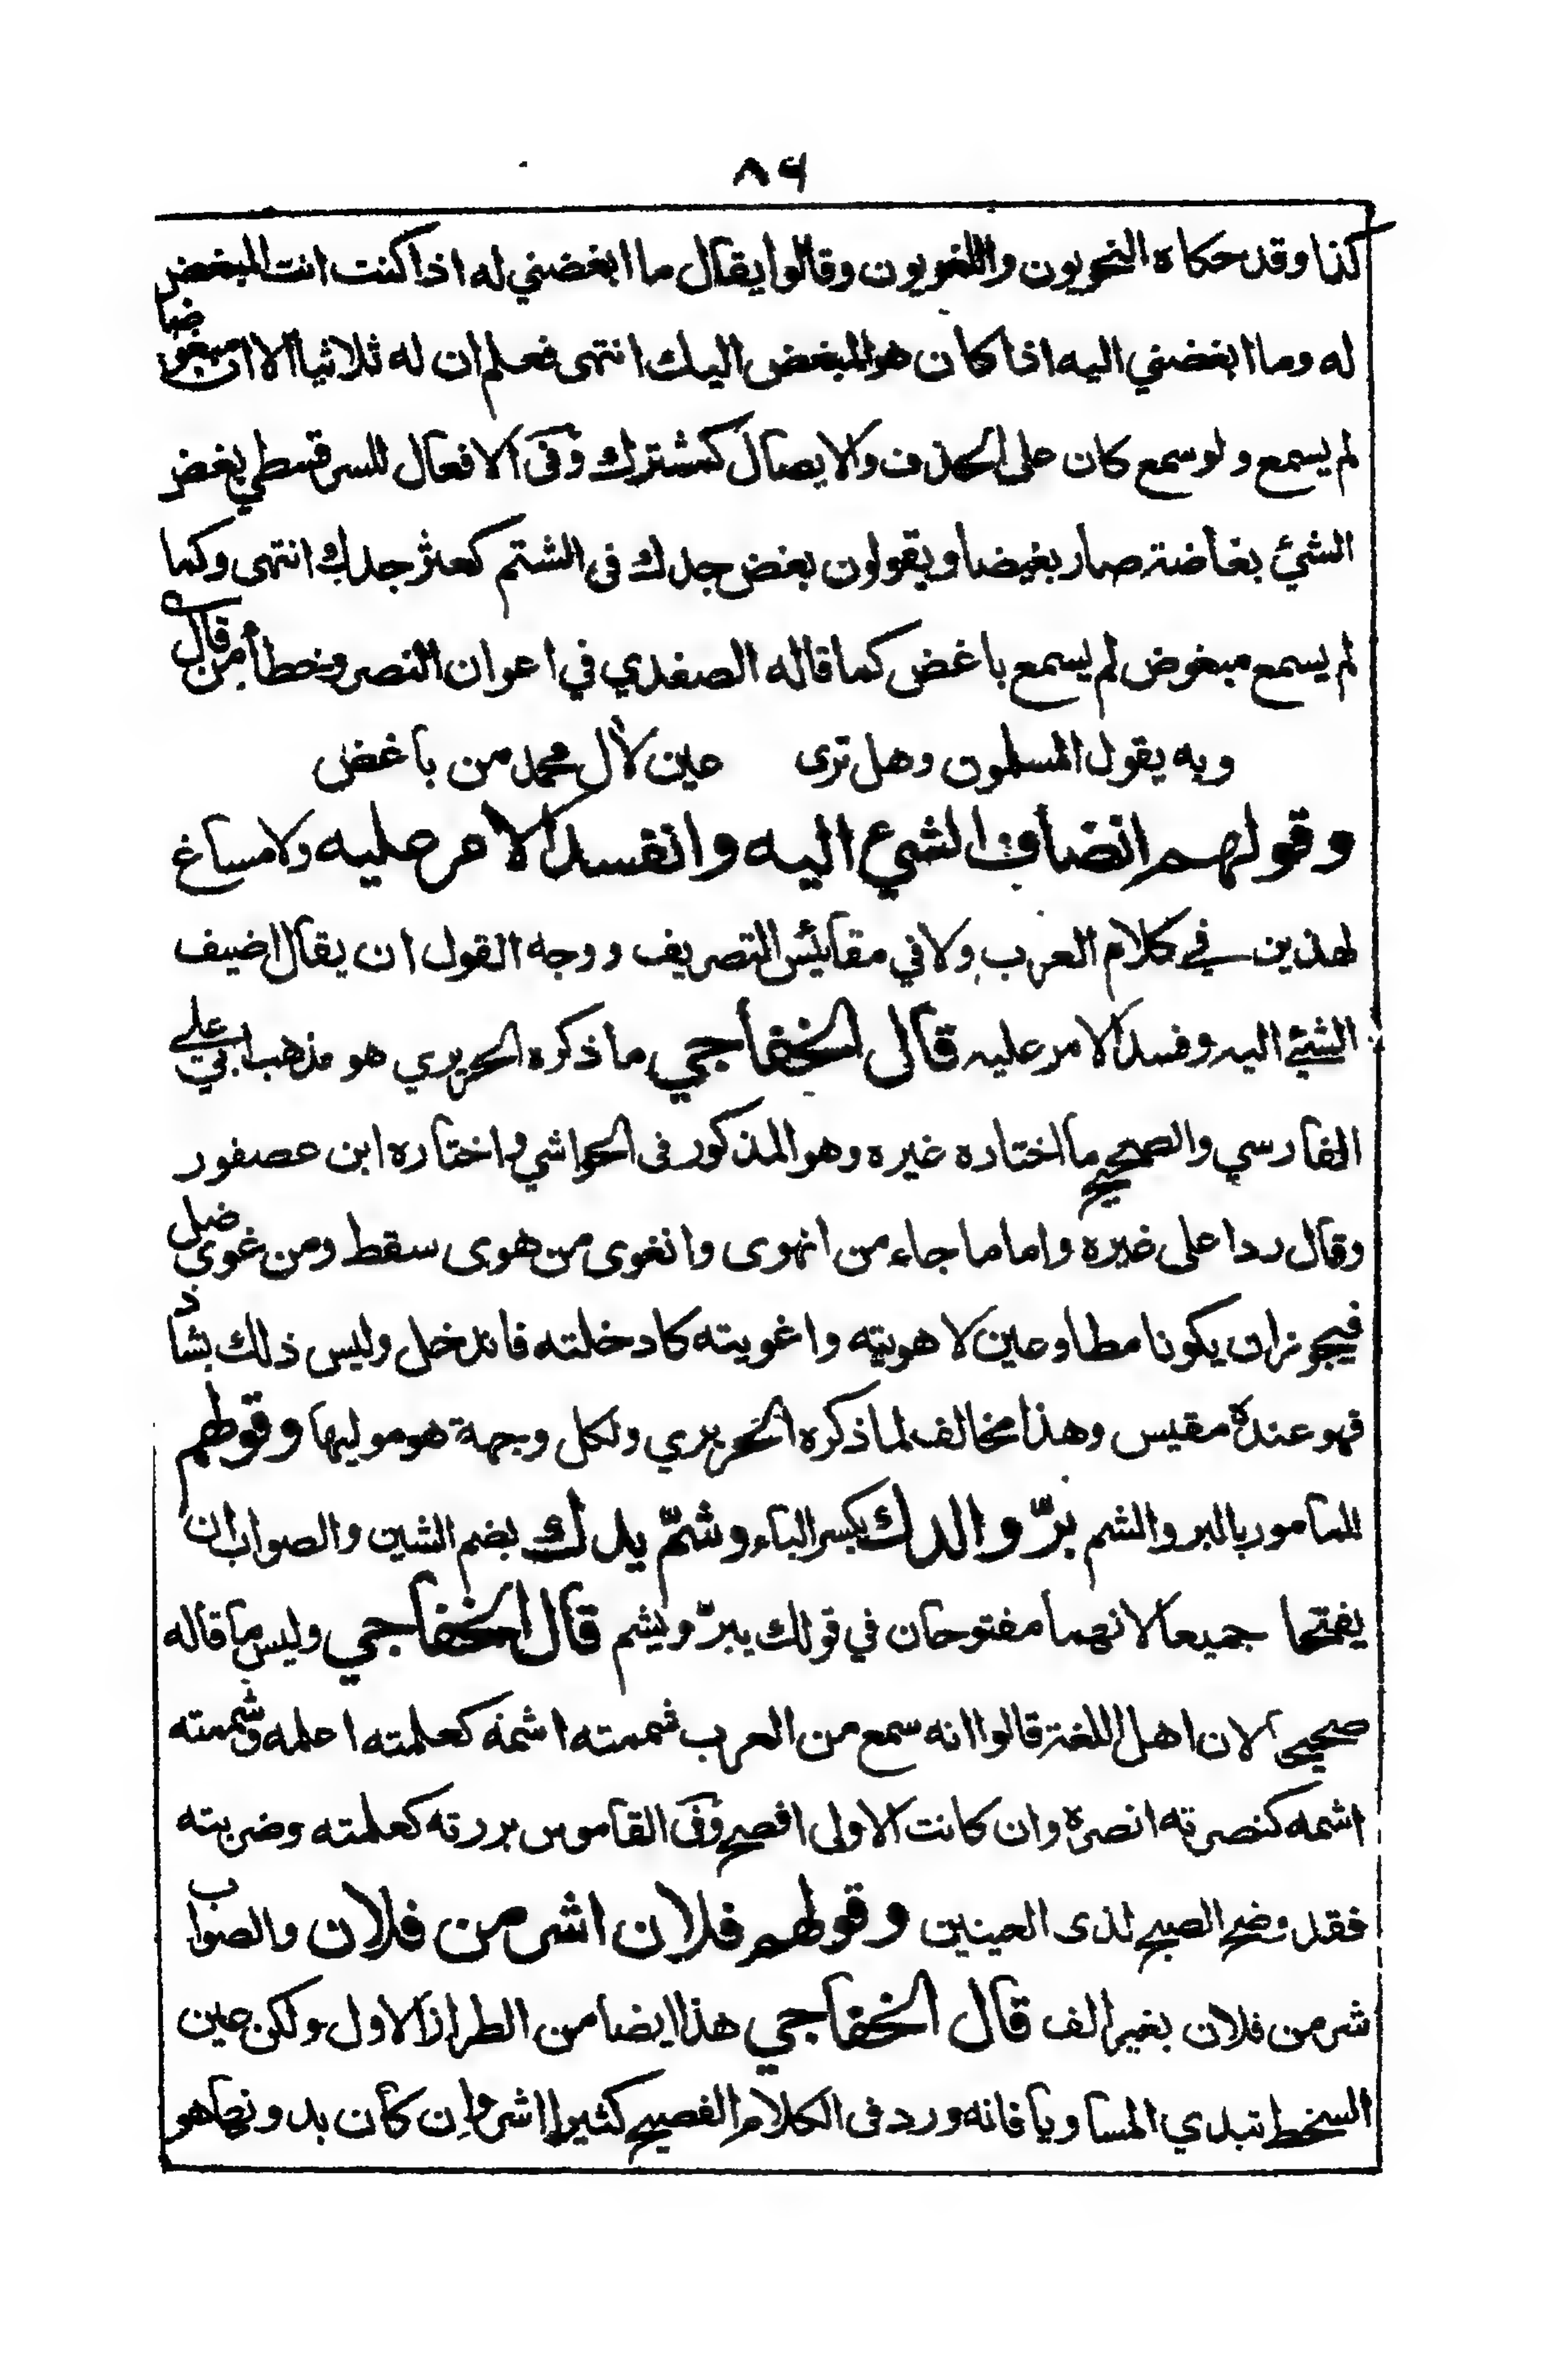 ٨٦
كذا وقد حكاه النحويون واللغويون وقالوا يقال ما ابغضني له اذا كنت انت المبغض
له وما ابغضني اليه اذا كان هو المبغض اليك انتهى فعلم ان له ثلاثيا الا ان مبغوضا
لم يسمع ولو سمع كان على الحذف والايصال كمشترك وفى الافعال للسرقسطي بغض
الشئ بغاضة صار بغيضا ويقولون بغض جدك فى الشتم كعثر جدك انتهى وكما
لم يسمع مبغوض لم يسمع باغض كما قاله الصفدي في اعوان النصر وخطأ من قال
وبه يقول المسلمون وهل ترى عين لآل محمد من باغض
وقولهم انضاف الشيء اليه وانفسد الامر عليه ولا مساغ
لهذين في كلام العرب ولا في مقائيس التصريف ووجه القول ان يقال اضيف
الشئ اليه وفسد الامر عليه قال الخفاجي ما ذكره الحريري هو مذهب ابي علي
الفارسي والصحيح ما اختاره غيره وهو المذكور فى الحواشي واختاره ابن عصفور
وقال ردا على غيره واما ما جاء من انهوى وانغوى من هوى سقط ومن غوى ضل
فيجوز ان يكونا مطاوعين لاهويته واغويته كادخلته فاندخل وليس ذلك بشاذ
فهو عنده مقيس وهذا مخالف لما ذكره الحريري ولكل وجهة هو موليها وقولهم
للمامور بالبر والشم برّ والدك بكسر الباء وشمّ يدك بضم الشين والصواب ان
يفتحا جميعا لانهما مفتوحان في قولك يبرّ ويشم قال الخفاجي وليس ما قاله
صحيحا لان اهل اللغة قالوا انه سمع من العرب شممته اشمه كعلمته اعلمه وشممته
اشمه كنصرته انصره وان كانت الاولى افصح وفى القاموس بررته كعلمته وضربته
فقد وضح الصبح لذى العينين وقولهم فلان اشر من فلان والصواب
شر من فلان بغير الف قال الخفاجي هذا ايضا من الطراز الاول ولكن عين
السخط تبدي المساويا فانه ورد فى الكلام الفصيح كثيرا اشر وان كان بدونها هو